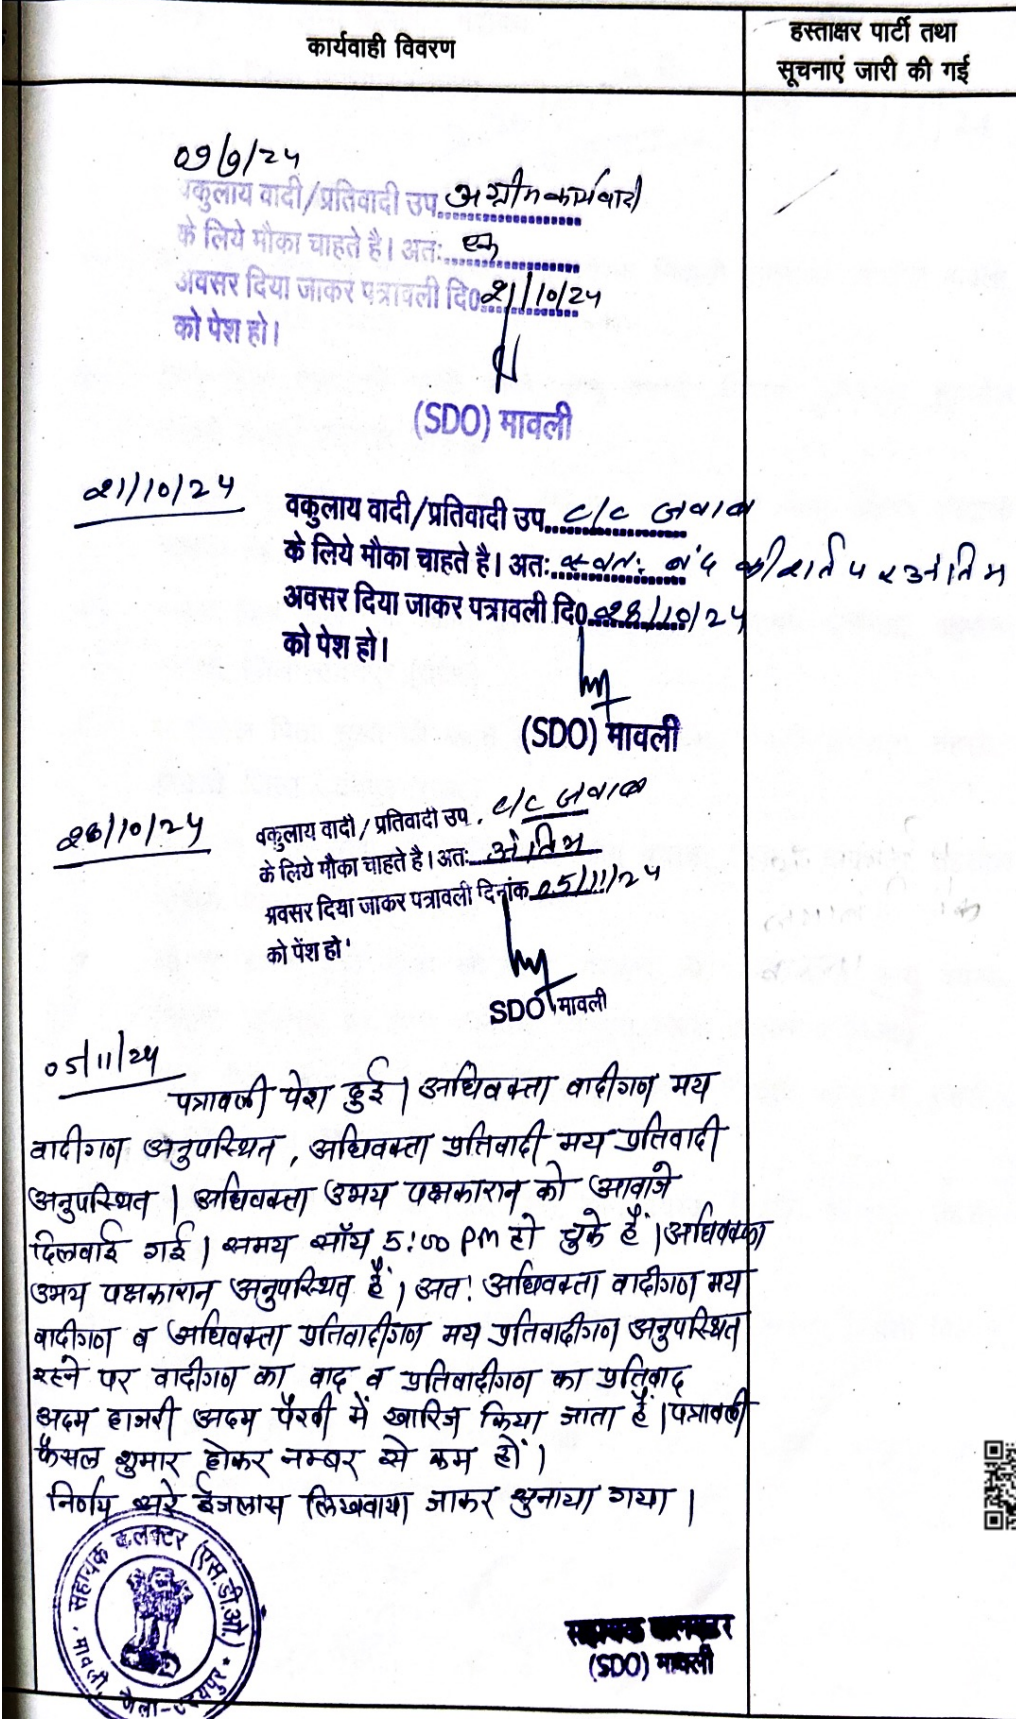 कार्यवाही विवरण
हस्ताक्षर पार्टी तथा
सूचनाएं जारी की गई
09/9/24
वकुलाय वादी/प्रतिवादी उप. अग्रीम कार्यवाही
के लिये मौका चाहते है। अतः एक
अवसर दिया जाकर पत्रावली दि0 21/10/24
को पेश हो।
(SDO) मावली
21/10/24
वकुलाय वादी/प्रतिवादी उप. c/c जवाब
के लिये मौका चाहते है। अतः स्वतः बंद की शर्त पर अंतिम
अवसर दिया जाकर पत्रावली दि0 28/10/24
को पेश हो।
(SDO) मावली
28/10/24
वकुलाय वादी / प्रतिवादी उप. c/c जवाब
के लिये मौका चाहते है। अतः अंतिम
अवसर दिया जाकर पत्रावली दिनांक 05/11/24
को पेंश हो
SDO मावली
05/11/24
पत्रावली पेश हुई। अधिवक्ता वादीगण मय
वादीगण अनुपस्थित, अधिवक्ता प्रतिवादी मय प्रतिवादी
अनुपस्थित। अधिवक्ता उभय पक्षकारान को आवाजे
दिलवाई गई। समय सॉय 5:00 PM हो चुके हैं। अधिवक्ता
उभय पक्षकारान अनुपस्थित हैं। अत: अधिवक्ता वादीगण मय
वादीगण व अधिवक्ता प्रतिवादीगण मय प्रतिवादीगण अनुपस्थित
रहने पर वादीगण का वाद व प्रतिवादीगण का प्रतिवाद
अदम हाजरी अदम पैरवी में खारिज किया जाता हैं। पत्रावली
फैसल शुमार होकर नम्बर से कम हों।
निर्णय सरे ईजलास लिखवाया जाकर सुनाया गया।
सहायक कलक्टर (एस.डी.ओ.)
मावली, जिला-उदयपुर
सहायक कलक्टर
(SDO) मावली